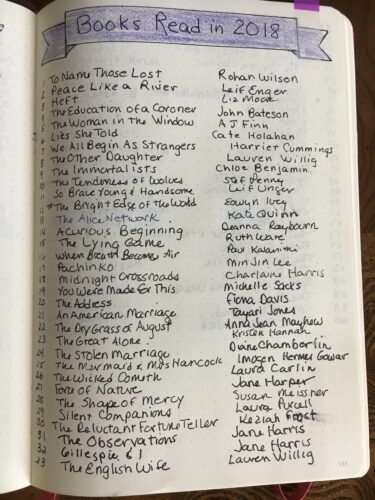 Books Read in 2018
1 To Name Those Lost Rohan Wilson
2 Peace Like a River Leif Enger
3 Heft Liz Moore
4 The Education of a Coroner John Bateson
5 The Woman in the Window A J Finn
6 Lies She Told Cate Holahan
7 We All Begin As Strangers Harriet Cummings
8 The Other Daughter Lauren Willig
9 The Immortalists Chloe Benjamin
10 The Tenderness of Wolves Stef Penny
11 So Brave Young & Handsome Leif Unger
12 The Bright Edge of the World Eowyn Ivey
13 The Alice Network Kate Quinn
14 A Curious Beginning Deanna Raybourn
15 The Lying Game Ruth Ware
16 When Breath Become Air Paul Kalanithi
17 Pachinko Min Jin Lee
18 Midnight Crossroads Charlaine Harris
19 You Were Made For This Michelle Sacks
20 The Address Fiona Davis
21 An American Marriage Tayari Jones
22 The Dry Grass of August Anna Jean Mayhew
23 The Great Alone Kristen Hannah
24 The Stolen Marriage Diane Chamberlin
25 The Mermaid & Mrs Hancock Imogen Hermes Gowar
26 The Wicked Cometh Laura Carlin
27 Force of Nature Jane Harper
28 The Shape of Mercy Susan Meissner
29 Silent Companions Laura Purcell
30 The Reluctant Fortune Teller Keziah Frost
31 The Observations Jane Harris
32 Gillespie & I Jane Harris
33 The English Wife Lauren Willig